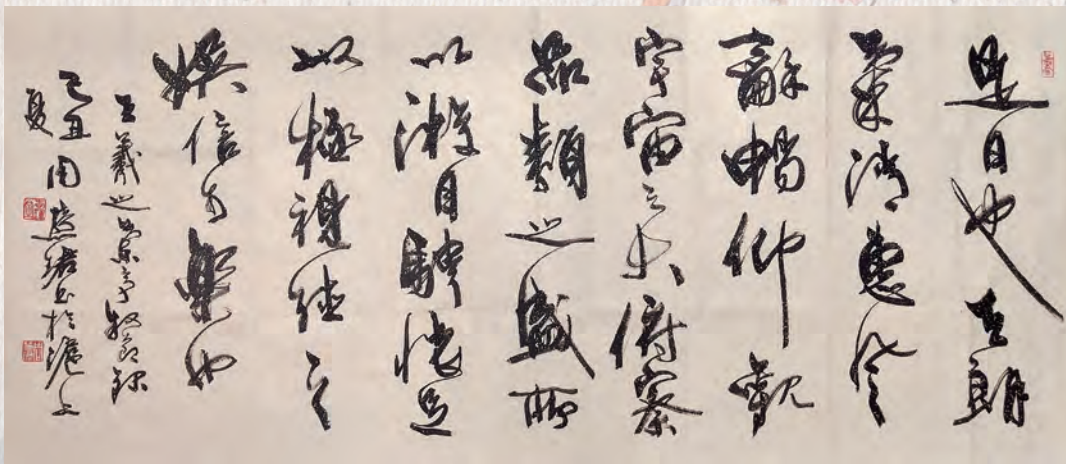 是日也天朗
氣清惠風
龢暢仰觀
宇宙之大俯察
品類之盛所
以游目騁懷足
以極視聽之
娛信可樂也
王羲之蘭亭敘節錄
己丑周慧珺書於滬上
夏